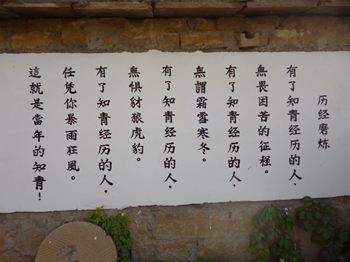 历经磨炼
有了知青经历的人，
無畏困苦的征程。
有了知青经历的人，
無謂霜雪寒冬。
有了知青经历的人，
無惧豺狼虎豹。
有了知青经历的人，
任凭你暴雨狂风。
這就是當年的知青！